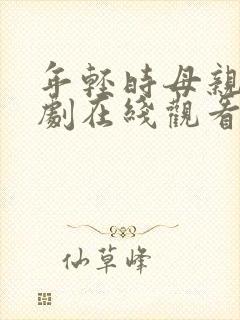 年輕時母親
劇在綫觀看
仙草峰